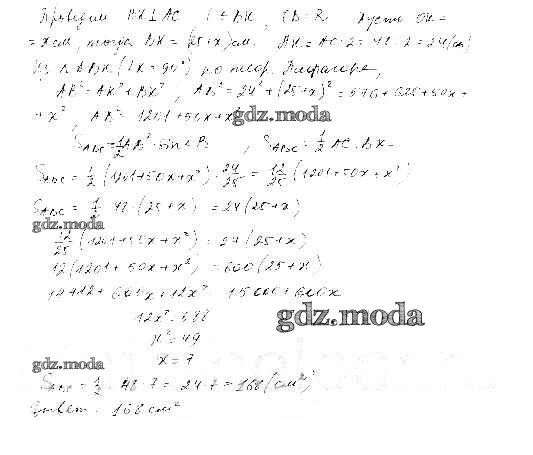 Проведем BK ⊥ AC, OB = R. Пусть OK =
= x см, тогда BK = (25+x) см. AK = AC : 2 = 48 : 2 = 24 (см)
Из ΔABK (∠K = 90°) по теор. Пифагора,
AB² = AK² + BK², AB² = 24² + (25+x)² = 576 + 625 + 50x +
+ x², AB² = 1201 + 50x + x²
gdz.moda
S_ABC = 1/2 AB² · sin∠B, S_ABC = 1/2 AC · BK
S_ABC = 1/2 (1201 + 50x + x²) · 24/25 = 12/25 (1201 + 50x + x²)
S_ABC = 1/2 · 48 · (25+x) = 24(25+x)
gdz.moda
12/25 (1201 + 50x + x²) = 24(25+x)
12(1201 + 50x + x²) = 600(25+x)
14412 + 600x + 12x² = 15000 + 600x
12x² = 588
gdz.moda
x² = 49
x = 7
gdz.moda
S_ABC = 1/2 · 48 · 7 = 24 · 7 = 168 (см²)
Ответ: 168 см²